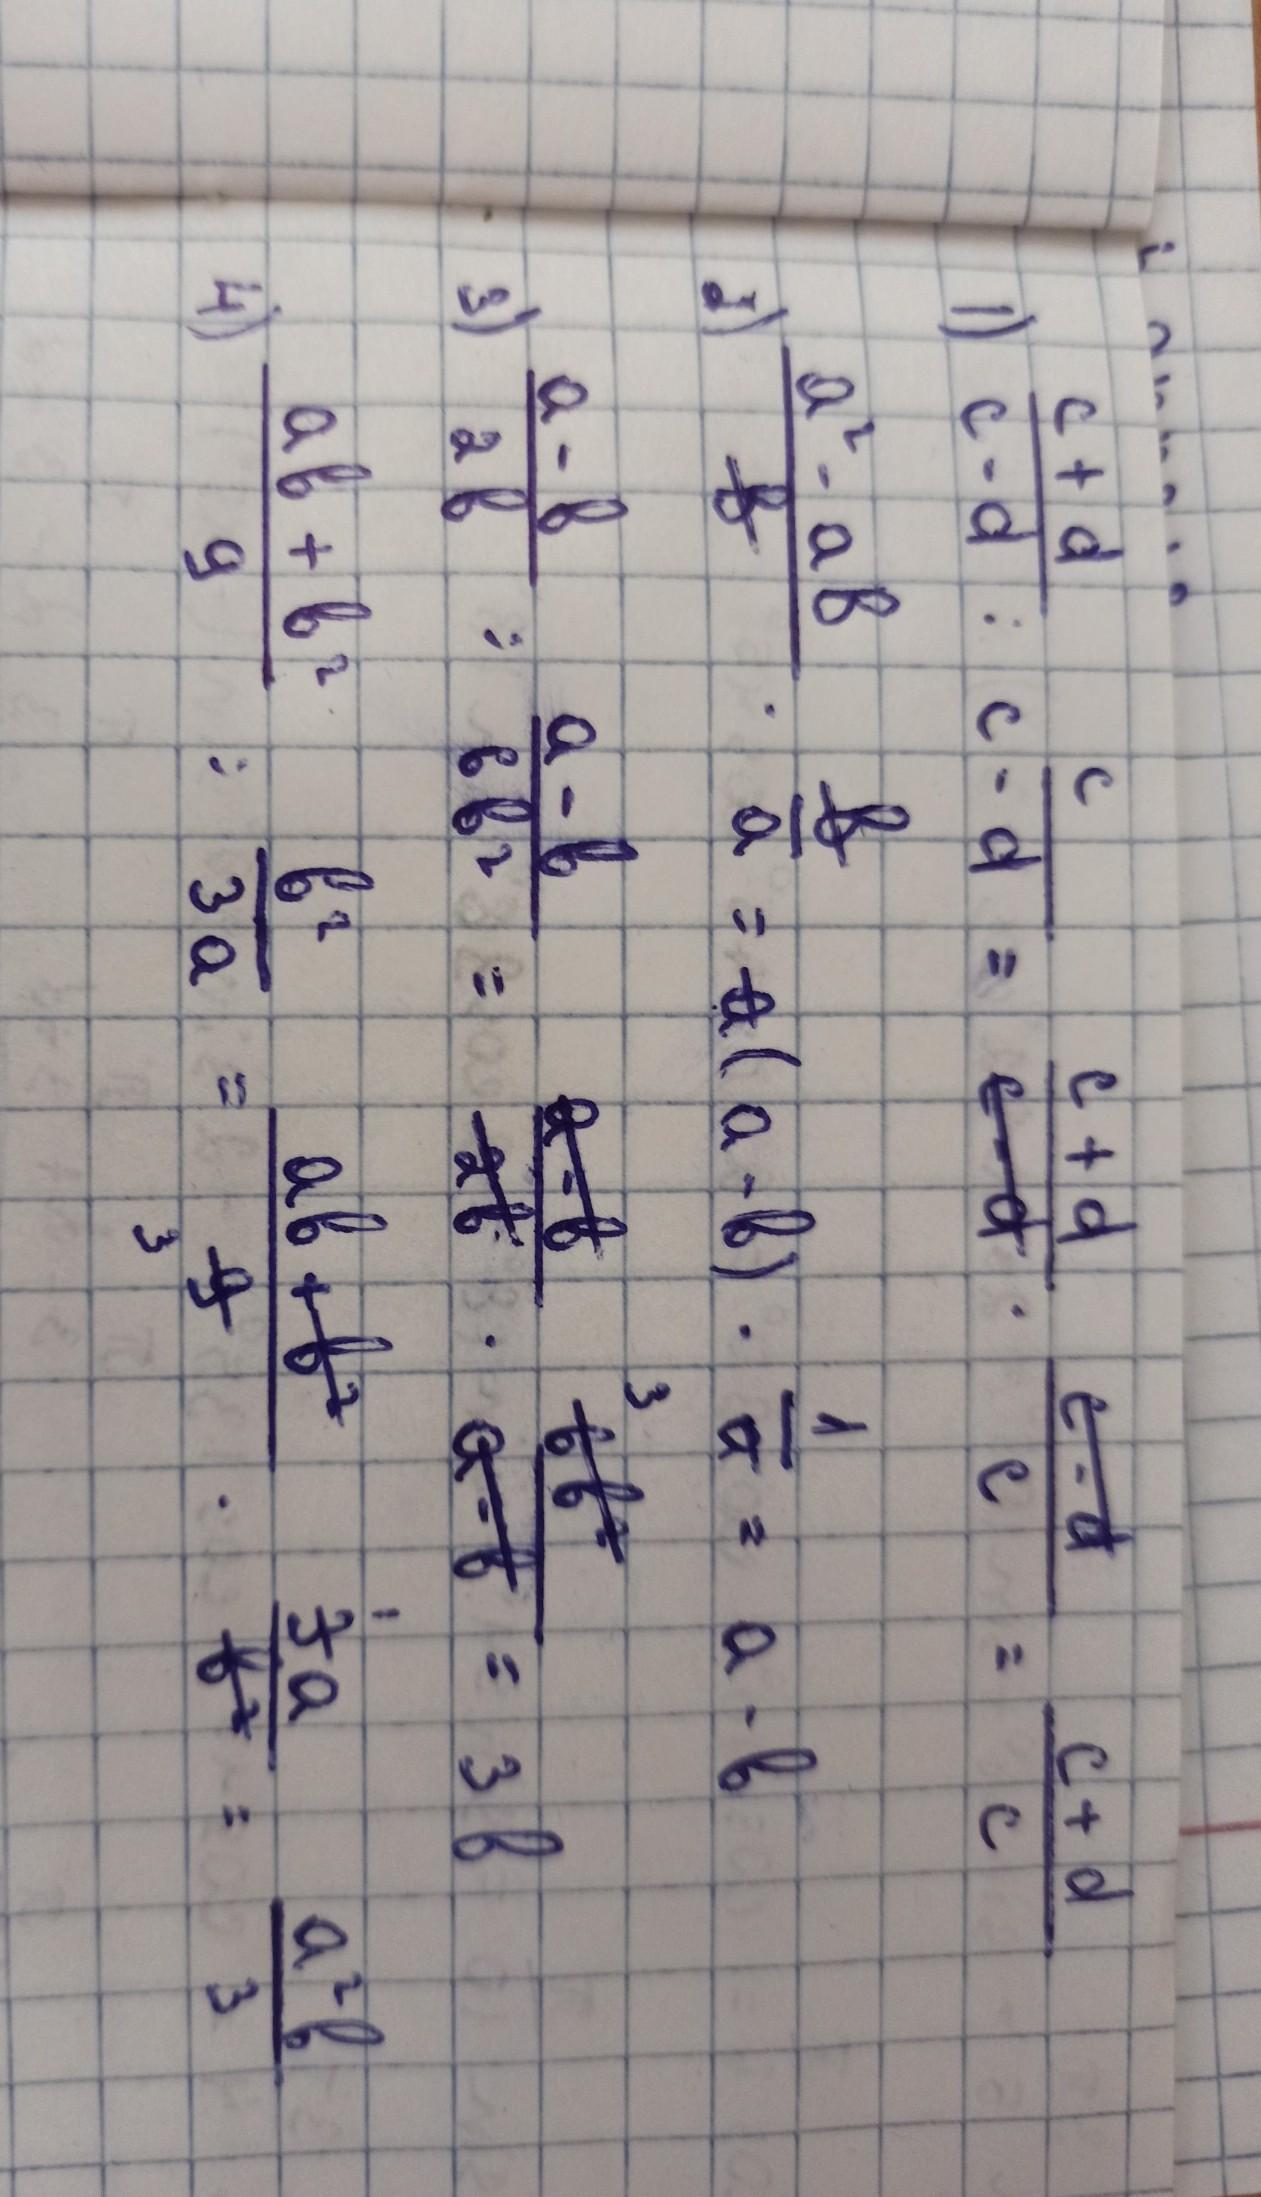 1) \frac{c+d}{c-d} : \frac{c}{c-d} = \frac{c+d}{c-d} \cdot \frac{c-d}{c} = \frac{c+d}{c}
2) \frac{a²-ab}{b} \cdot \frac{b}{a} = a(a-b) \cdot \frac{1}{a} = a-b
3) \frac{a-b}{2b} : \frac{a-b}{6b²} = \frac{a-b}{2b} \cdot \frac{6b²}{a-b} ³ = 3b
4) \frac{ab+b²}{9} : \frac{b²}{3a} = \frac{ab+b²}{9} ₃ \cdot \frac{3a}{b²} ¹ = \frac{a²b}{3}